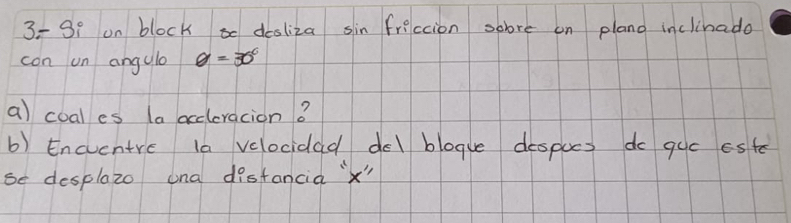 3.- Si un block se desliza sin friccion sobre un plano inclinado
con un angulo θ = 30°
a) cual es la acceleracion?
b) Encuentre la velocidad del bloque despues de que este
se desplazo una distancia "x"